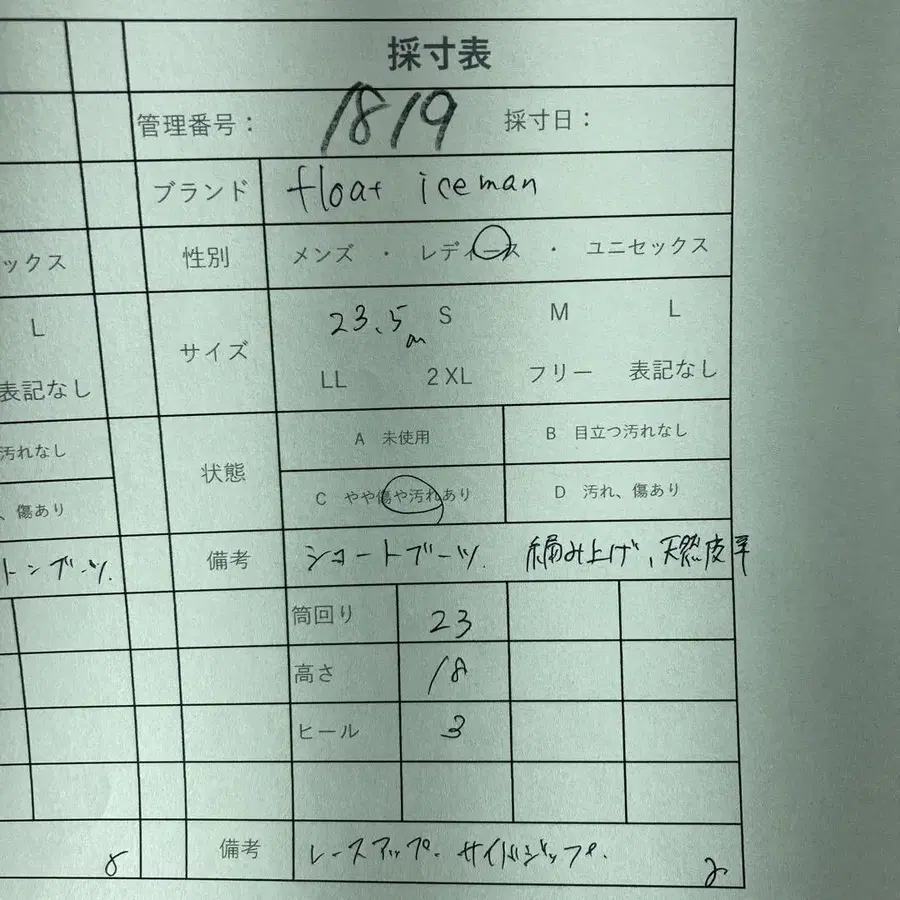 採寸表
管理番号: 1819 採寸日:
ブランド float iceman
性別 メンズ ・ レディース ・ ユニセックス
サイズ 23.5cm S M L
LL 2XL フリー 表記なし
状態 A 未使用 B 目立つ汚れなし
C やや傷や汚れあり D 汚れ、傷あり
備考 ショートブーツ. 編み上げ、天然皮革
筒回り 23
高さ 18
ヒール 3
備考 レースアップ. サイドジップ. 2
ックス
L
表記なし
汚れなし
、傷あり
トンブーツ.
8